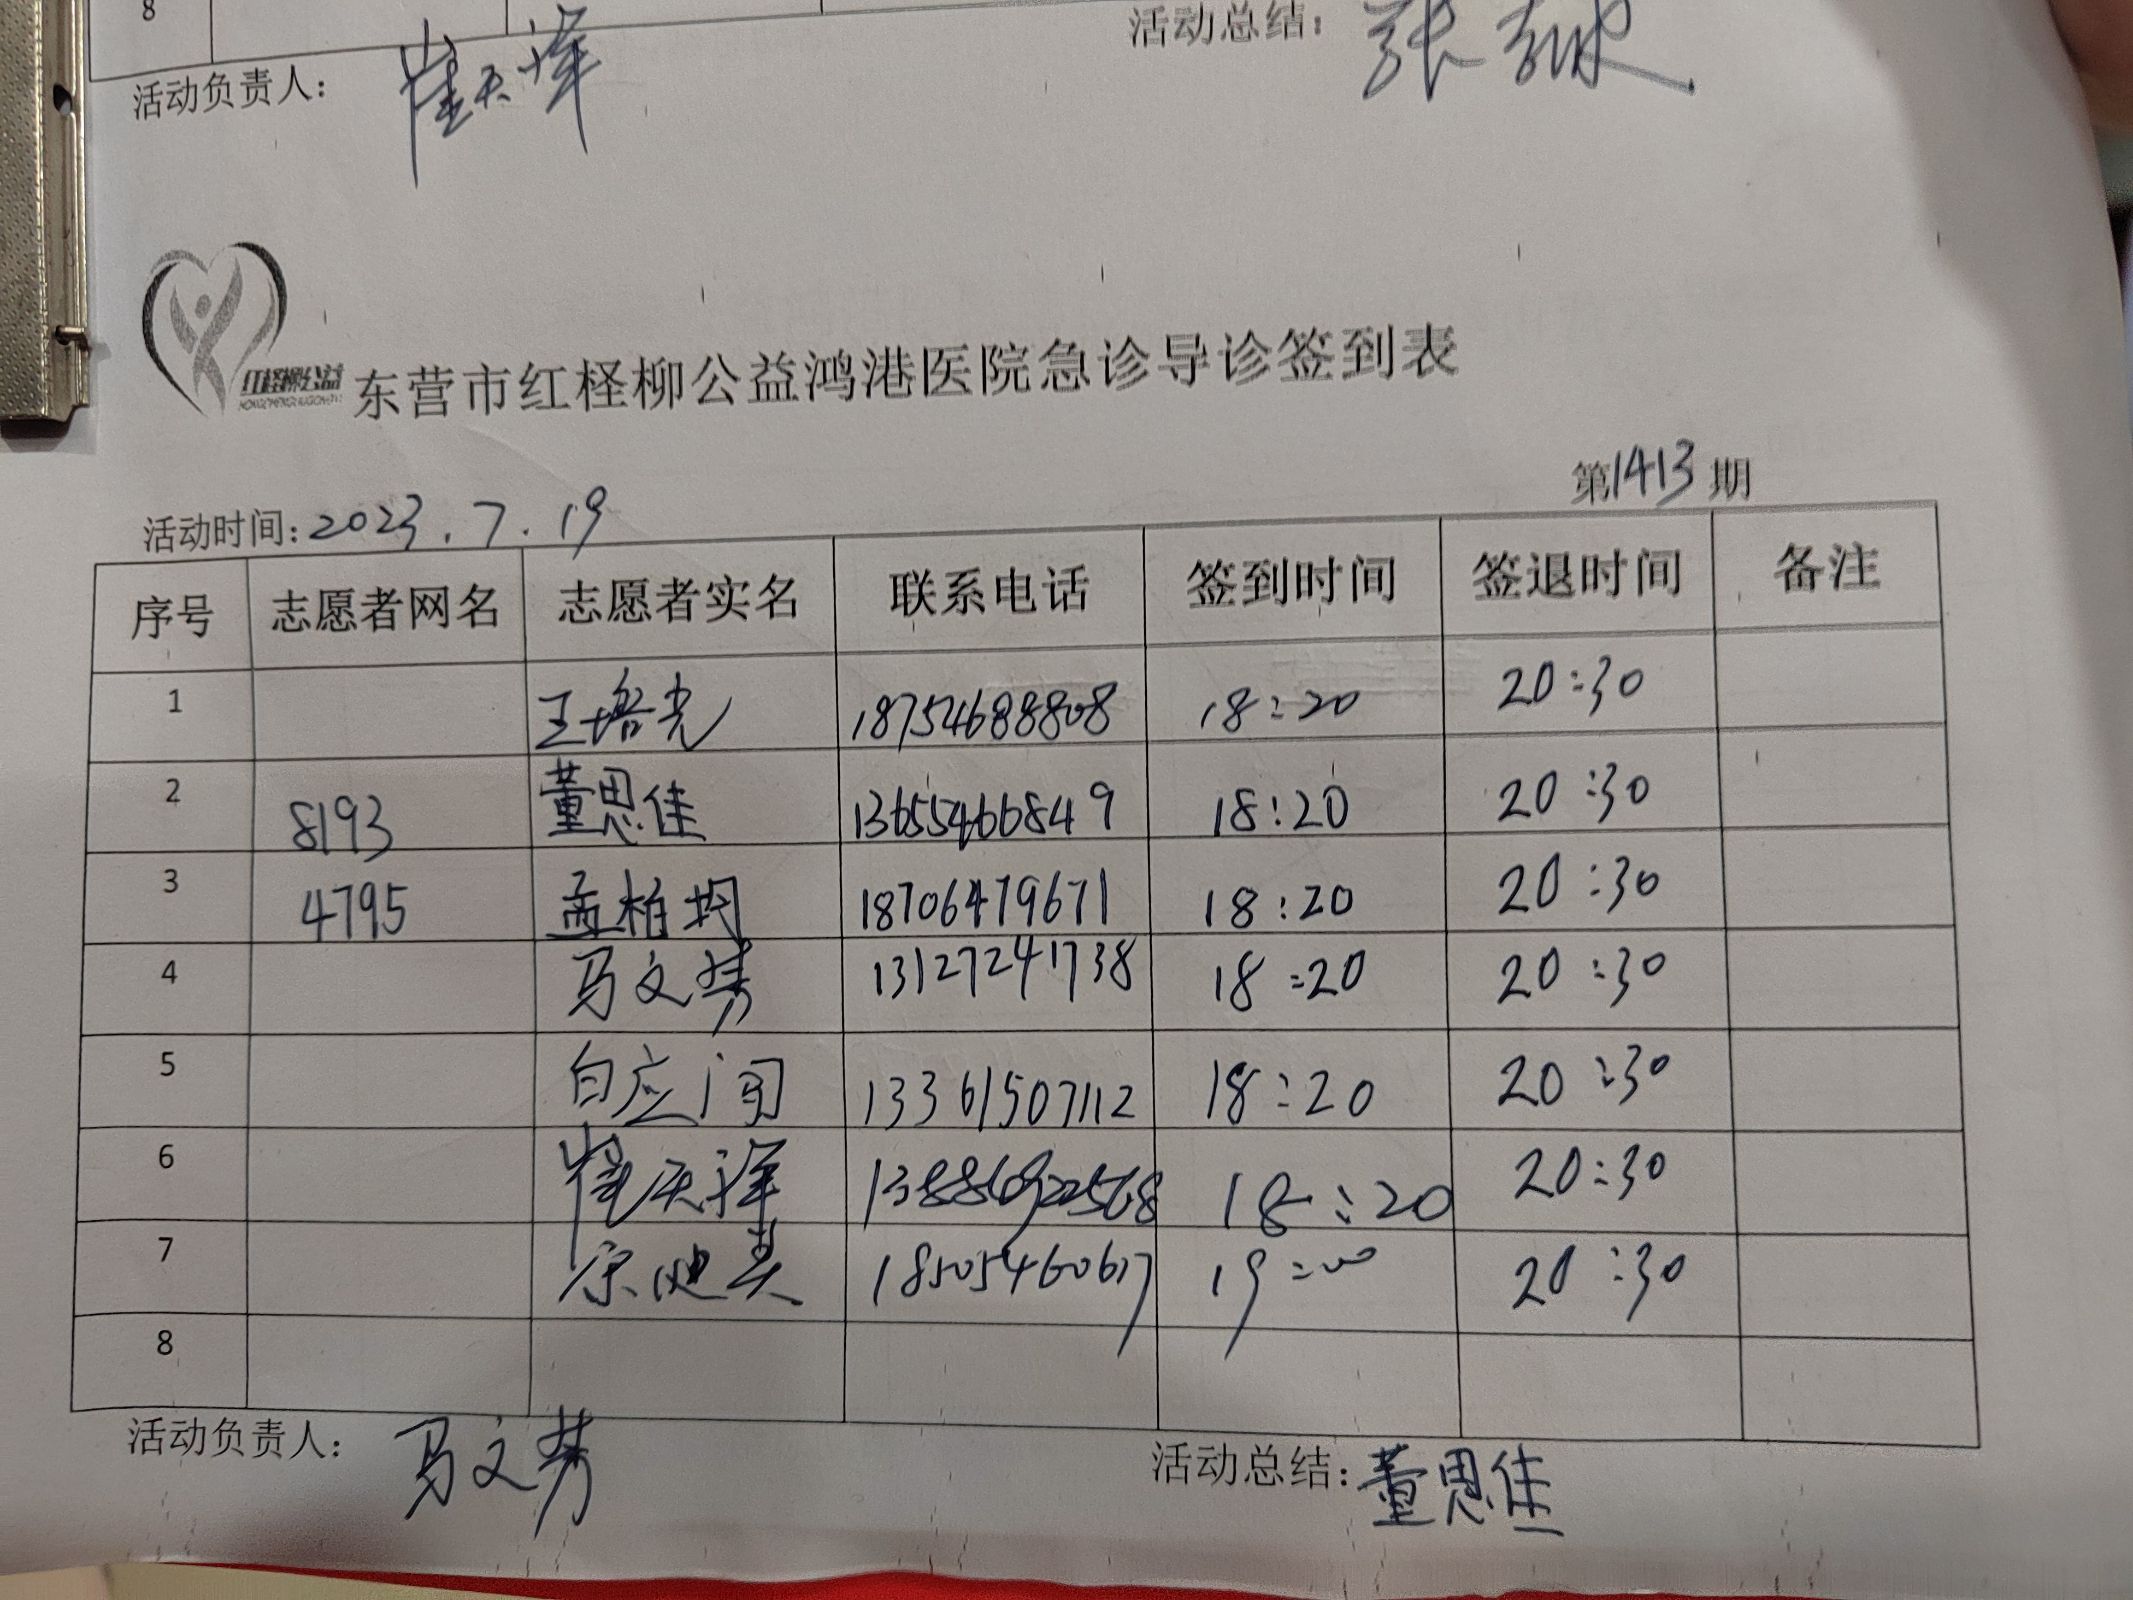 8
活动总结：
活动负责人： 崔天泽
红柽柳公益
东营市红柽柳公益鸿港医院急诊导诊签到表
第1413期
活动时间：2023.7.19
序号 志愿者网名 志愿者实名 联系电话 签到时间 签退时间 备注
1 王培光 18754688808 18:20 20:30
2 8193 董思佳 13655466849 18:20 20:30
3 4795 孟柏均 18706479671 18:20 20:30
4 马文秀 13127241738 18:20 20:30
5 白应闯 13361507112 18:20 20:30
6 崔天泽 18:20 20:30
7 18505460617 19:00 20:30
8
活动负责人： 马文秀
活动总结：董思佳